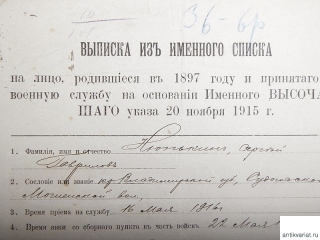 36-бр
ВЫПИСКА ИЗЪ ИМЕННОГО СПИСКА
на лицо, родившіеся въ 1897 году и принятаго
военную службу на основаніи Именного ВЫСОЧА
ШАГО указа 20 ноября 1915 г.
1. Фамилія, имя и отчество Сергѣй
Гавриловъ
2. Сословіе или званіе кр. Владимірской губ, Судогодск
вол.
3. Время пріема на службу. 16 Мая 1916г.
4. Время явки со сборнаго пункта въ часть войскъ . 22 Мая 1
antikvariat.ru